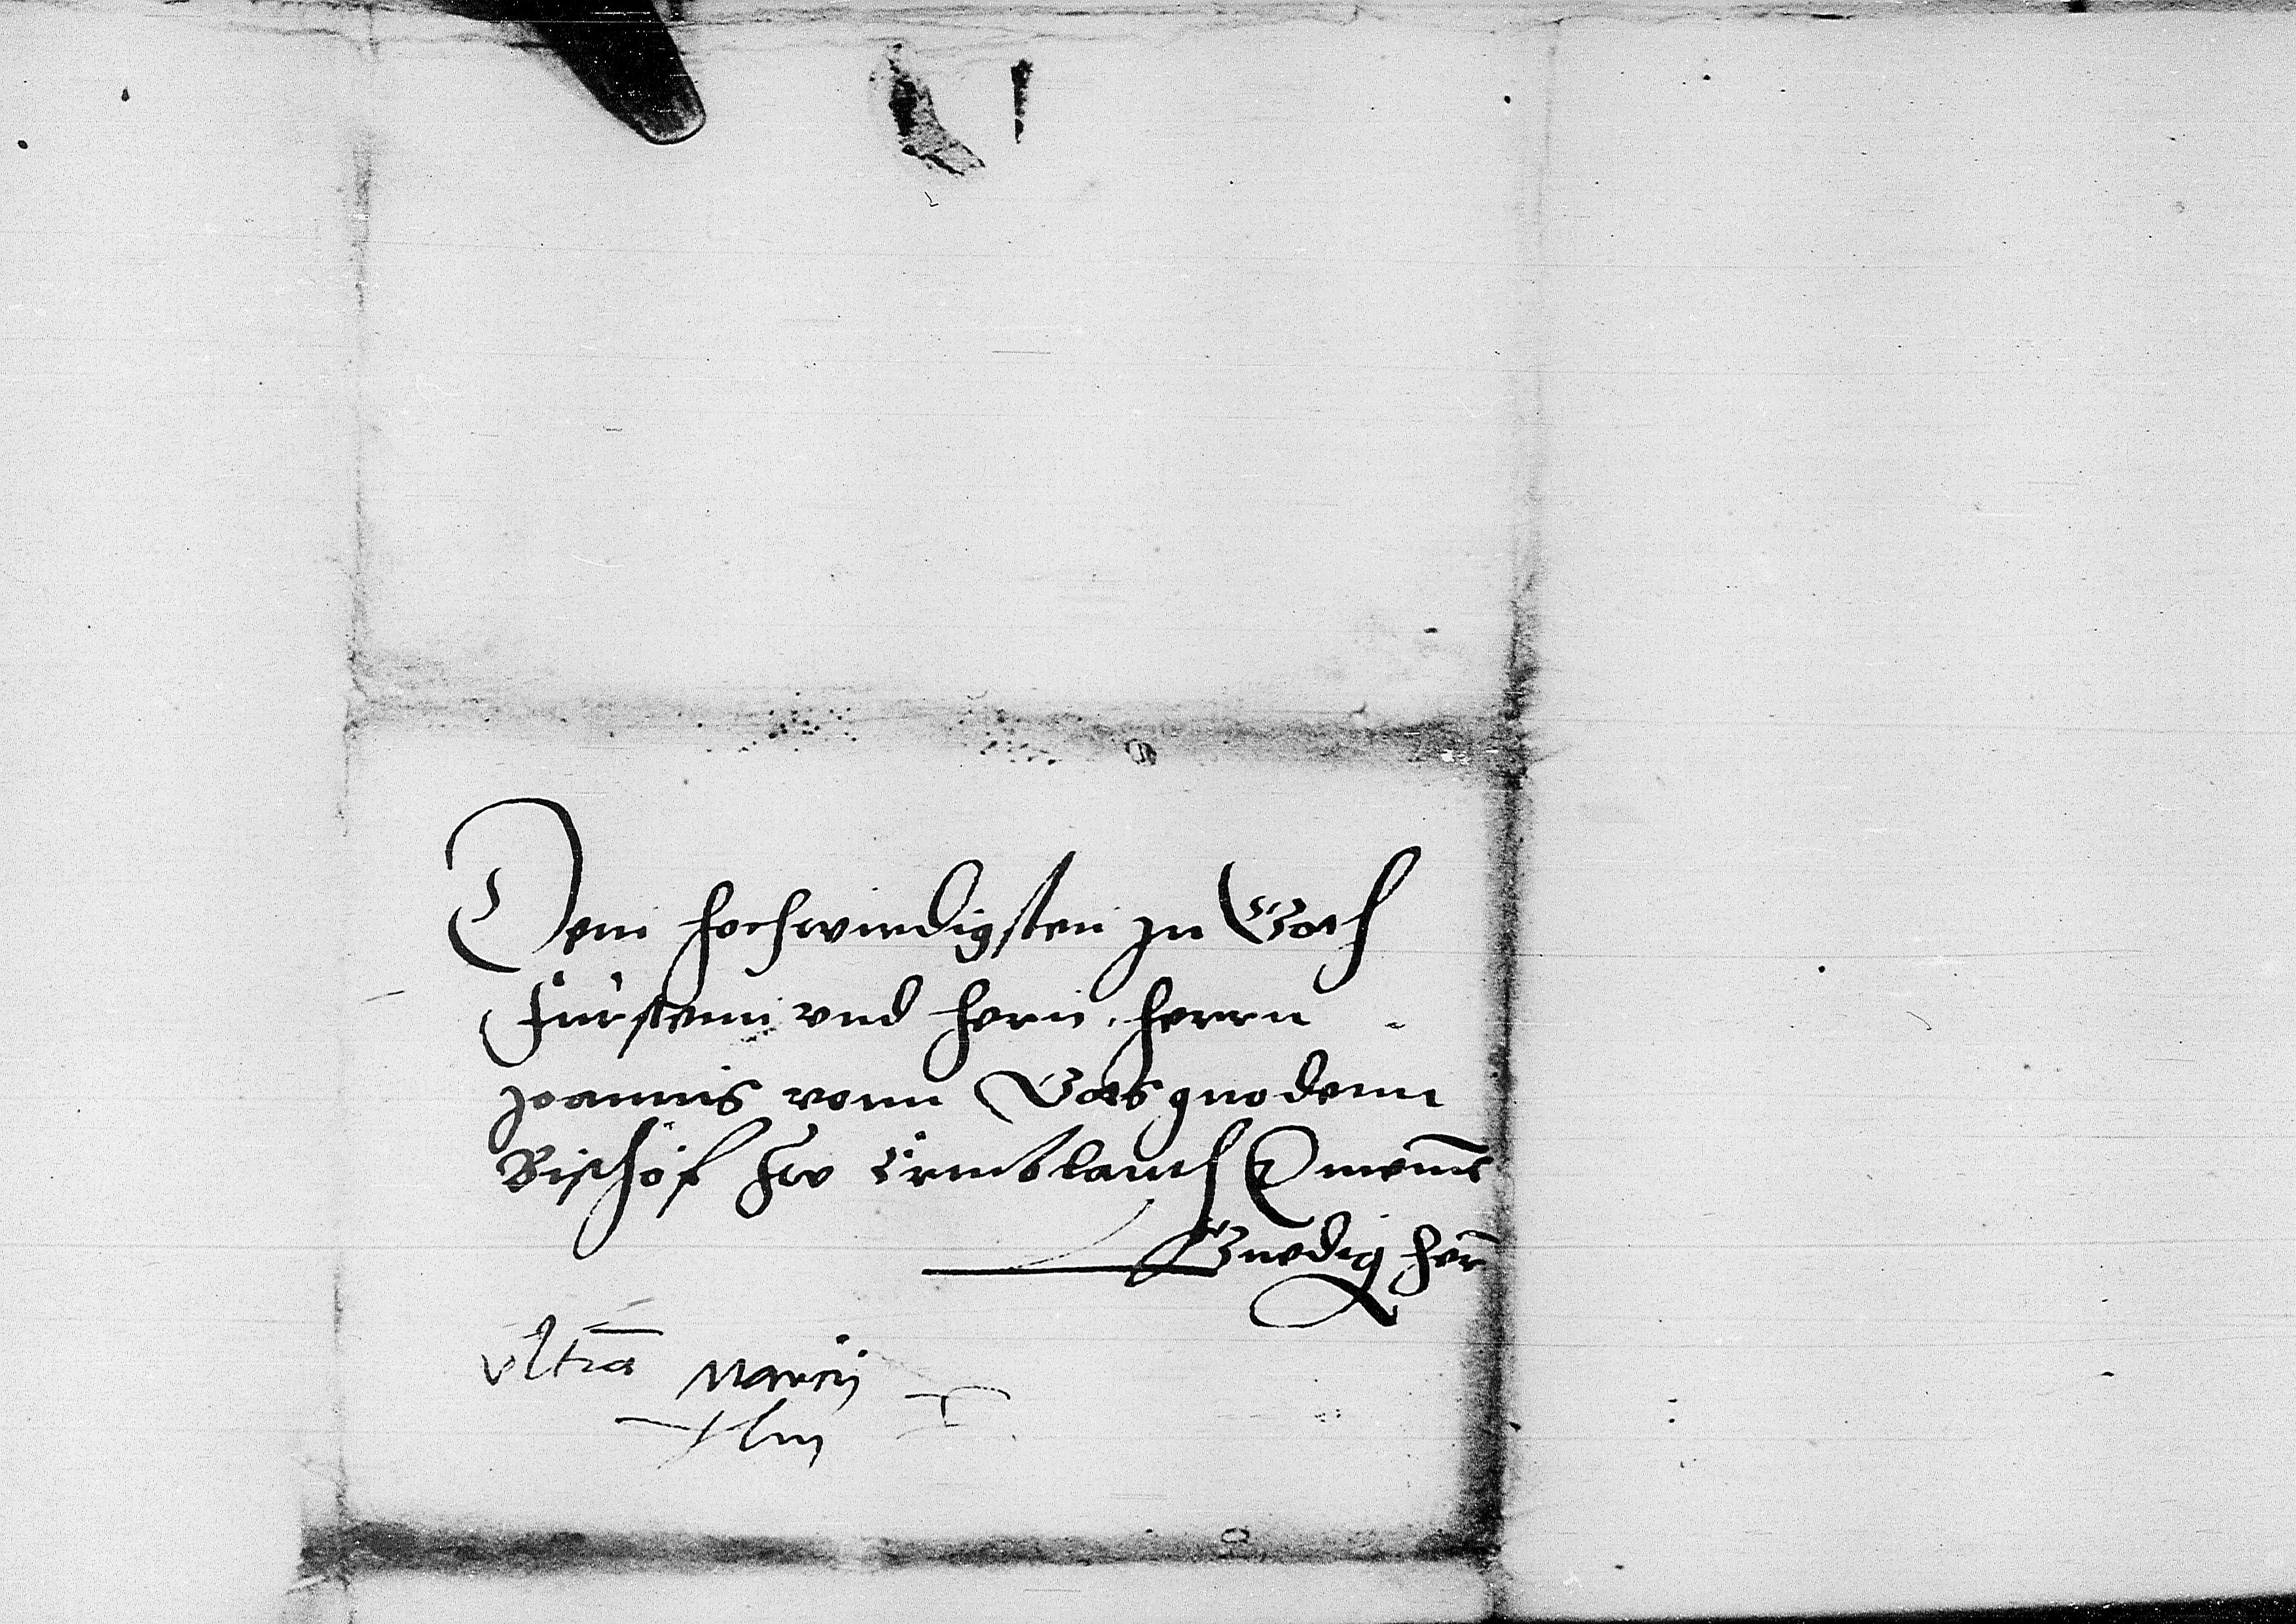 Dem hochwirdigsten zu Goth
Furstenn vnd hern, herrn
Joannis vonn Gots gnodenn
Bischof zw ermblanth Meinē
Gnedig hern̄
vltīa Marcij